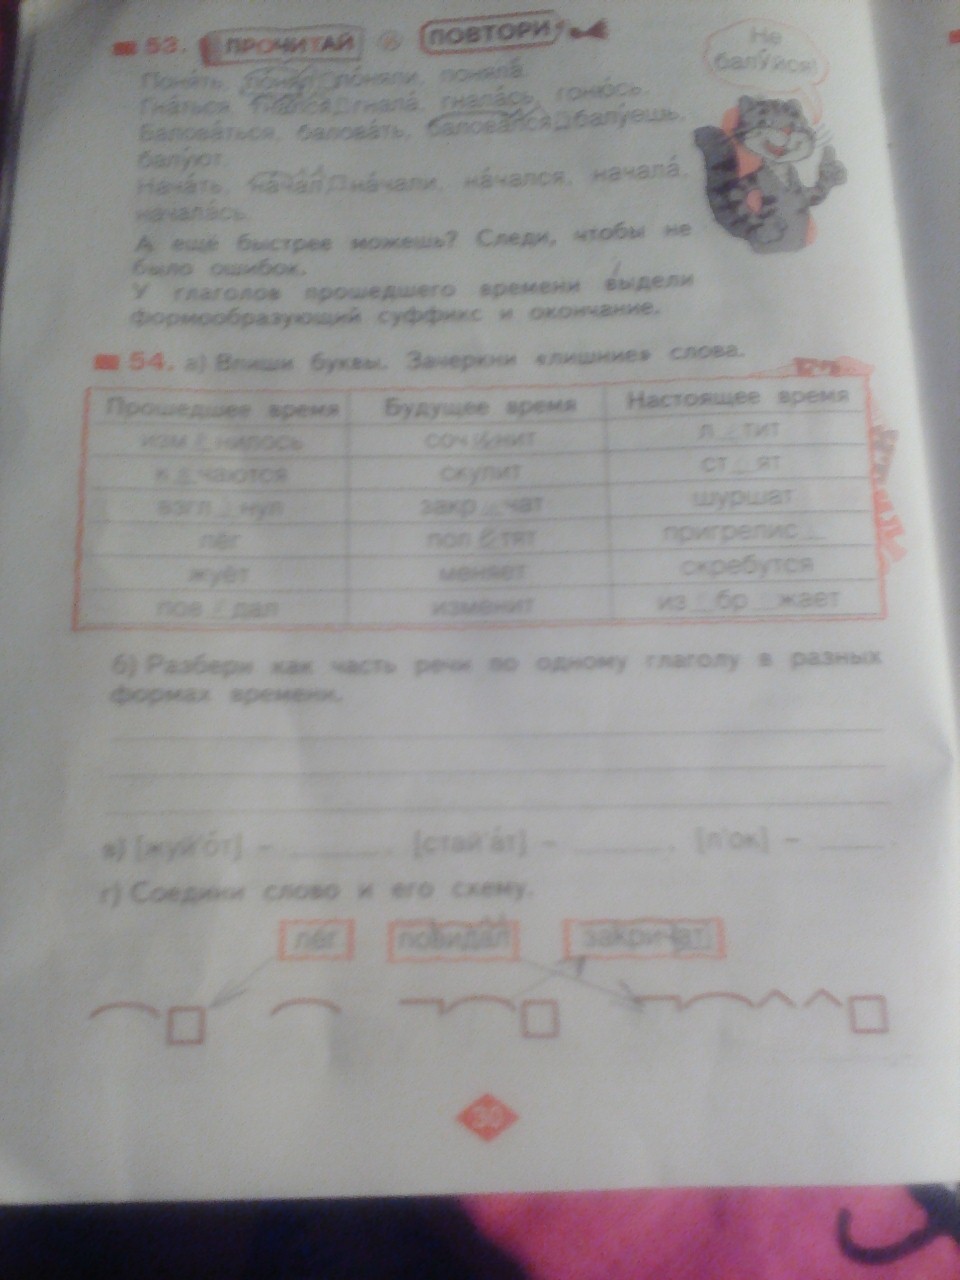 53. ПРОЧИТАЙ ПОВТОРИ
Не
балу́йся!
Поня́ть, по́нял, по́няли, поняла́.
Гна́ться, гнался, гнала́, гнала́сь, гоню́сь.
Балова́ться, балова́ть, баловался, балу́ешь,
балу́ют.
Нача́ть, на́чал, на́чали, на́чался, начала́,
начала́сь.
А ещё быстрее можешь? Следи, чтобы не
было ошибок.
У глаголов прошедшего времени выдели
формообразующий суффикс и окончание.
54. а) Впиши буквы. Зачеркни «лишние» слова.
Прошедшее время Будущее время Настоящее время
изм_нилось соч и нит л_тит
к_чаются скупит ст_ят
взгл_нул закр_чат шуршат
лёг пол е тят пригрелис_
жуёт меняет скребутся
пов_дал изменит из_бр_жает
б) Разбери как часть речи по одному глаголу в разных
формах времени.
в) [жуй'о́т] – ______. [стай'а́т] – ______. [л'ок] – ____.
г) Соедини слово и его схему.
лёг повидал закричат
30